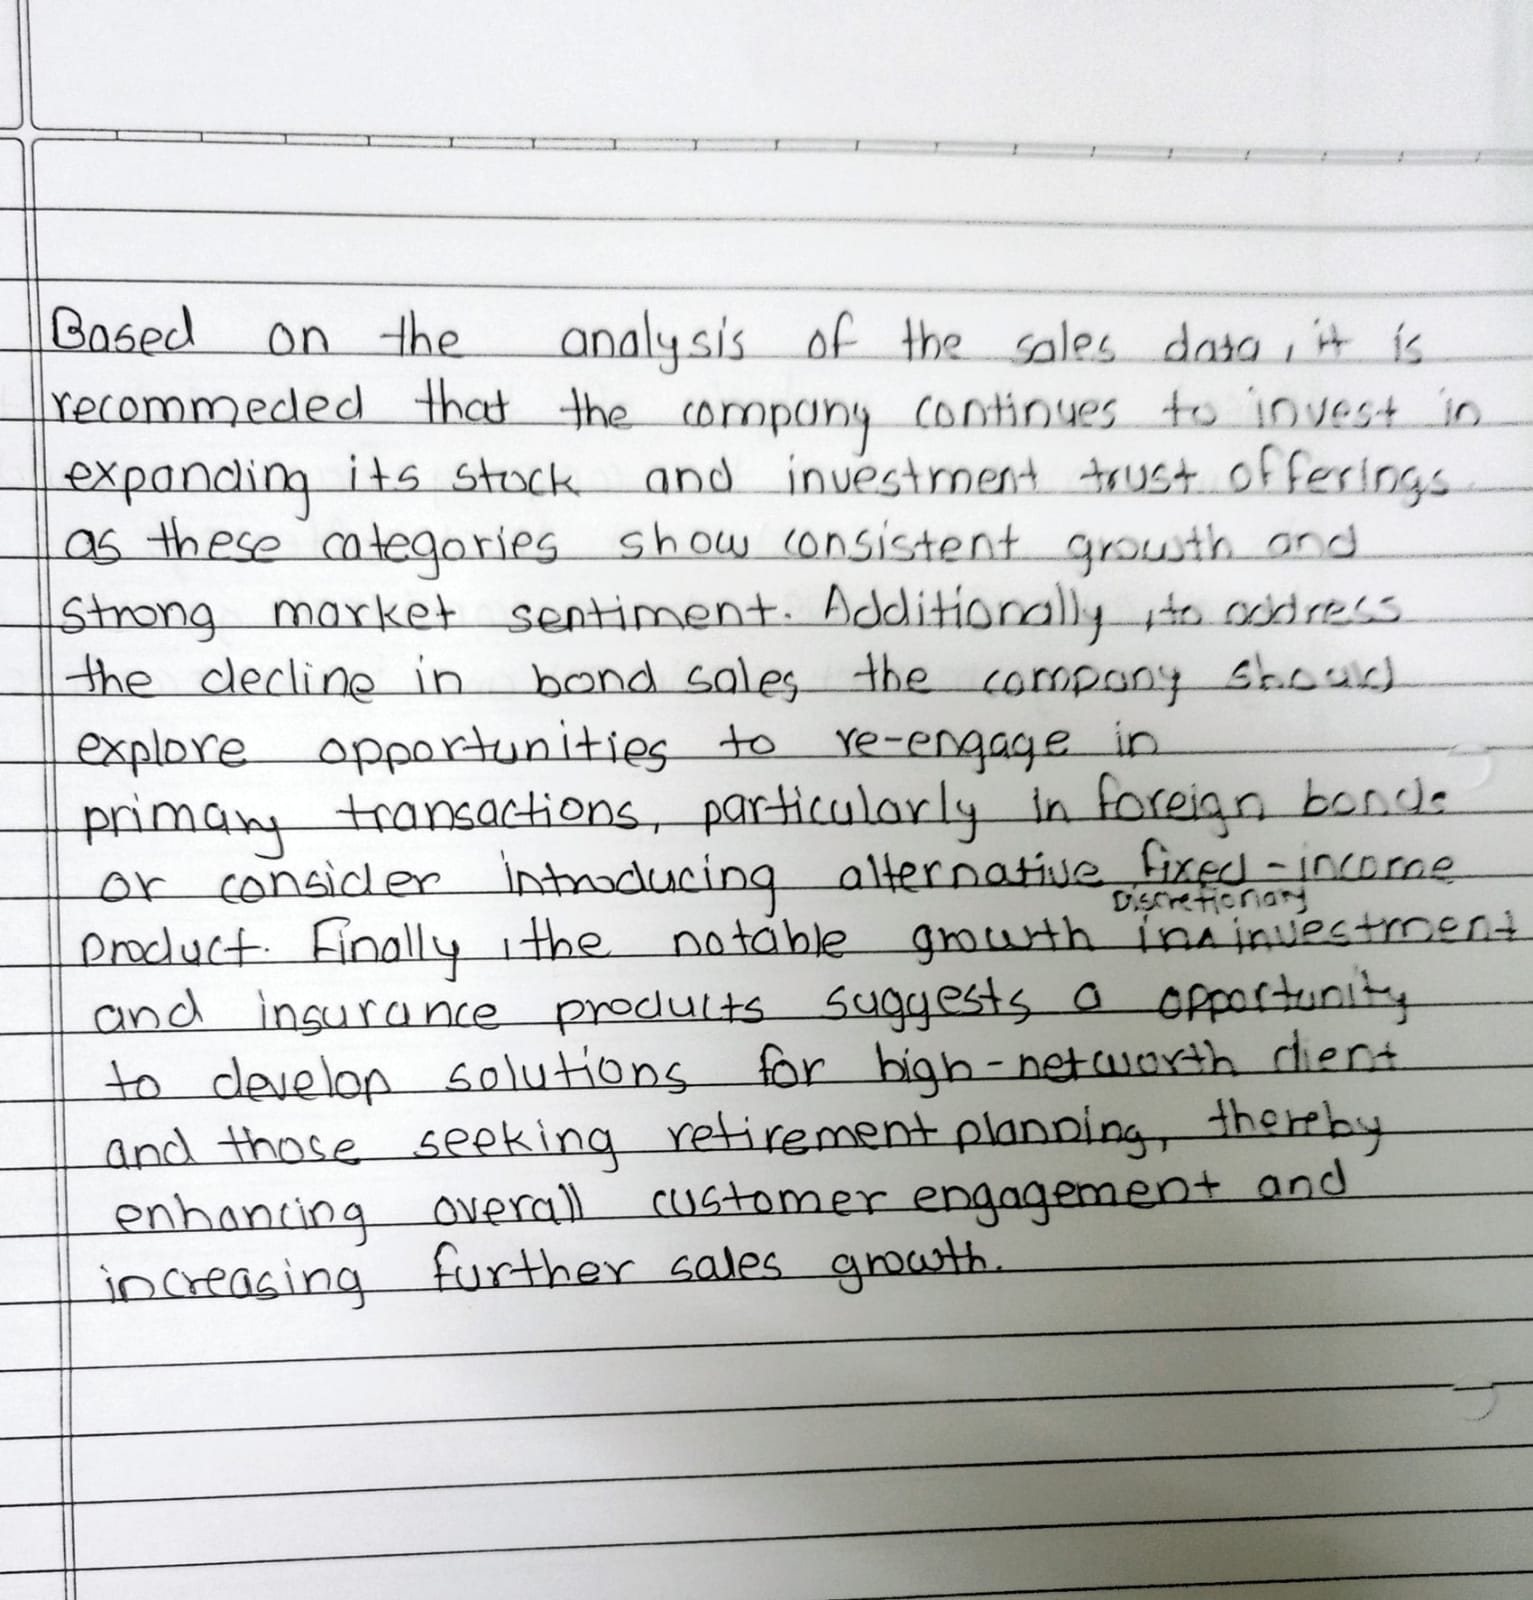 Based on the analysis of the sales data, it is
recommeded that the company continues to invest in
expanding its stock and investment trust offerings
as these categories show consistent growth and
strong market sentiment. Additionally, to address
the decline in bond sales the company should
explore opportunities to re-engage in
primary transactions, particularly in foreign bonds
or consider introducing alternative fixed-income
Discretionary
product. Finally, the notable growth in ^ investment
and insurance products suggests a opportunity
to develop solutions for high-networth client
and those seeking retirement planning, thereby
enhancing overall customer engagement and
increasing further sales growth.